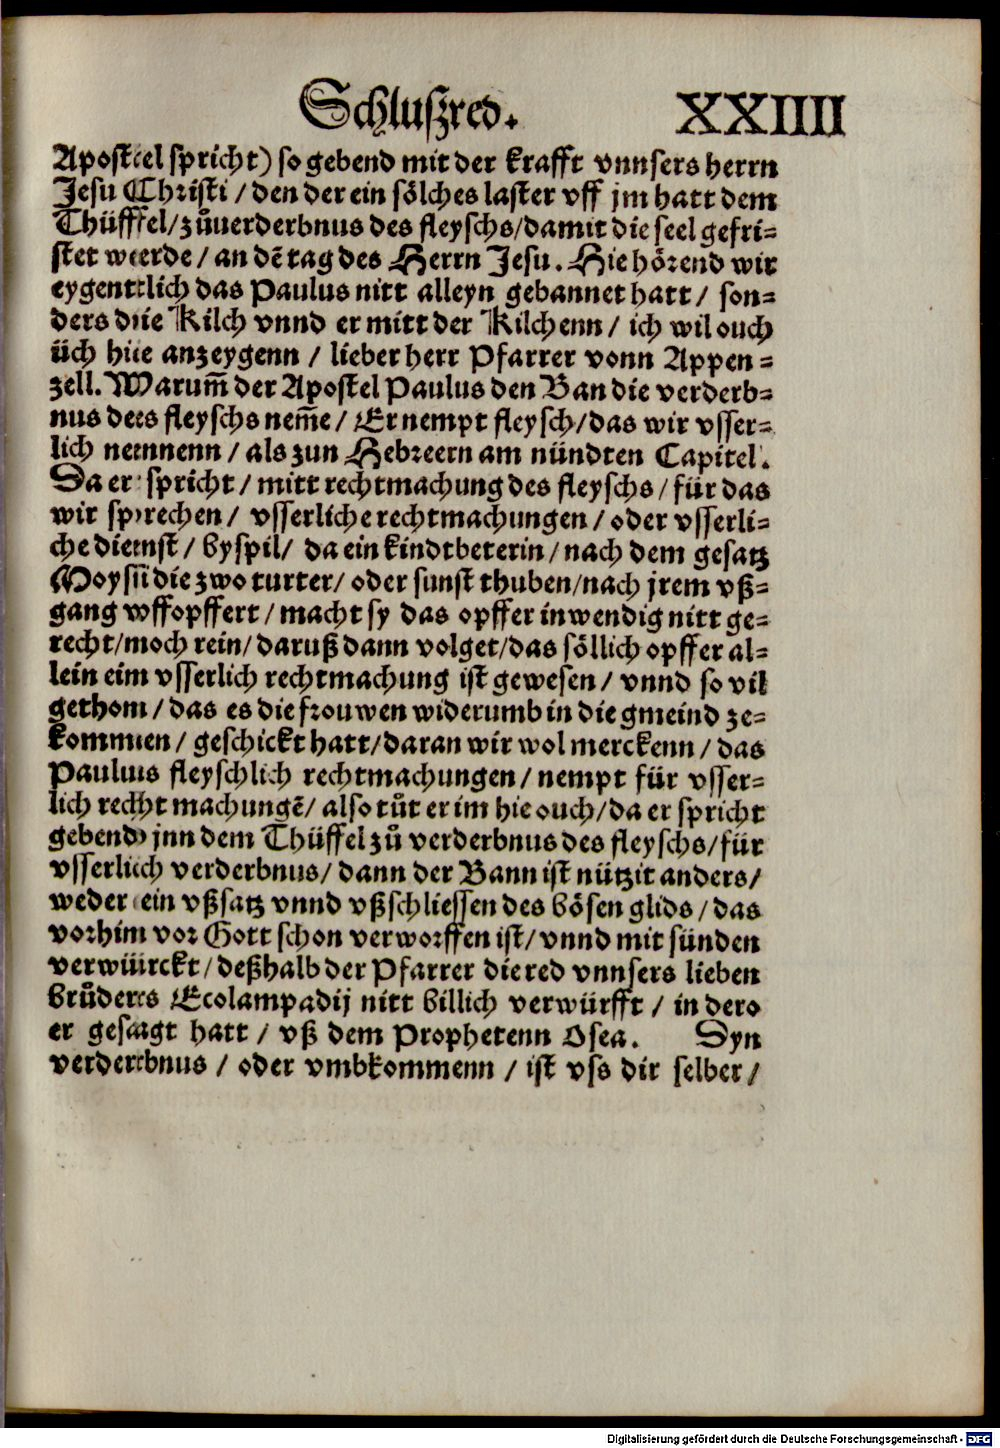 Schluſzred. XXIIII
Apostel spricht) so gebend mit der krafft vnnsers herrn
Jesu Christi / den der ein sölches laster vff jm hatt dem
Thüffel/zůuerderbnus des fleyschs/damit die seel gefri⸗
stet werde / an dē tag des Herrn Jesu. Hie hörend wir
eygentlich das Paulus nitt alleyn gebannet hatt / son⸗
ders die Kilch vnnd er mitt der Kilchenn / ich wil ouch
üch hie anzeygenn / lieber herr Pfarrer vonn Appen⸗
zell. Warum̄ der Apostel Paulus den Ban die verderb⸗
nus des fleyschs nem̄e / Er nempt fleysch/das wir vsser⸗
lich nennenn / als zun Hebreern am nündten Capitel.
Da er spricht / mitt rechtmachung des fleyschs / für das
wir sprechen / vsserliche rechtmachungen / oder vsserli⸗
che dienst / byspil/ da ein kindtbeterin / nach dem gesatz
Moysii die zwo turter/ oder sunst thuben/nach jrem vß⸗
gang vffopffert / macht sy das opffer inwendig nitt ge⸗
recht/noch rein/ daruß dann volget/das söllich opffer al⸗
lein ein vsserlich rechtmachung ist gewesen / vnnd so vil
gethon / das es die frouwen widerumb in die gmeind ze⸗
kommen / geschickt hatt/daran wir wol merckenn / das
Paulus fleyschlich rechtmachungen / nempt für vsser⸗
lich recht machungē/ also tůt er im hie ouch/da er spricht
gebend jnn dem Thüffel zů verderbnus des fleyschs/für
vsserlich verderbnus/ dann der Bann ist nützit anders/
weder ein vßsatz vnnd vßschliessen des bösen glids / das
vorhin vor Gott schon verworffen ist/ vnnd mit sünden
verwürckt / deßhalb der Pfarrer die red vnnsers lieben
brůders Ecolampadij nitt billich verwürfft / in dero
er gesagt hatt / vß dem Prophetenn Osea. Dyn
verderbnus / oder vmbkommenn / ist vss dir selber /
Digitalisierung gefördert durch die Deutsche Forschungsgemeinschaft - DFG